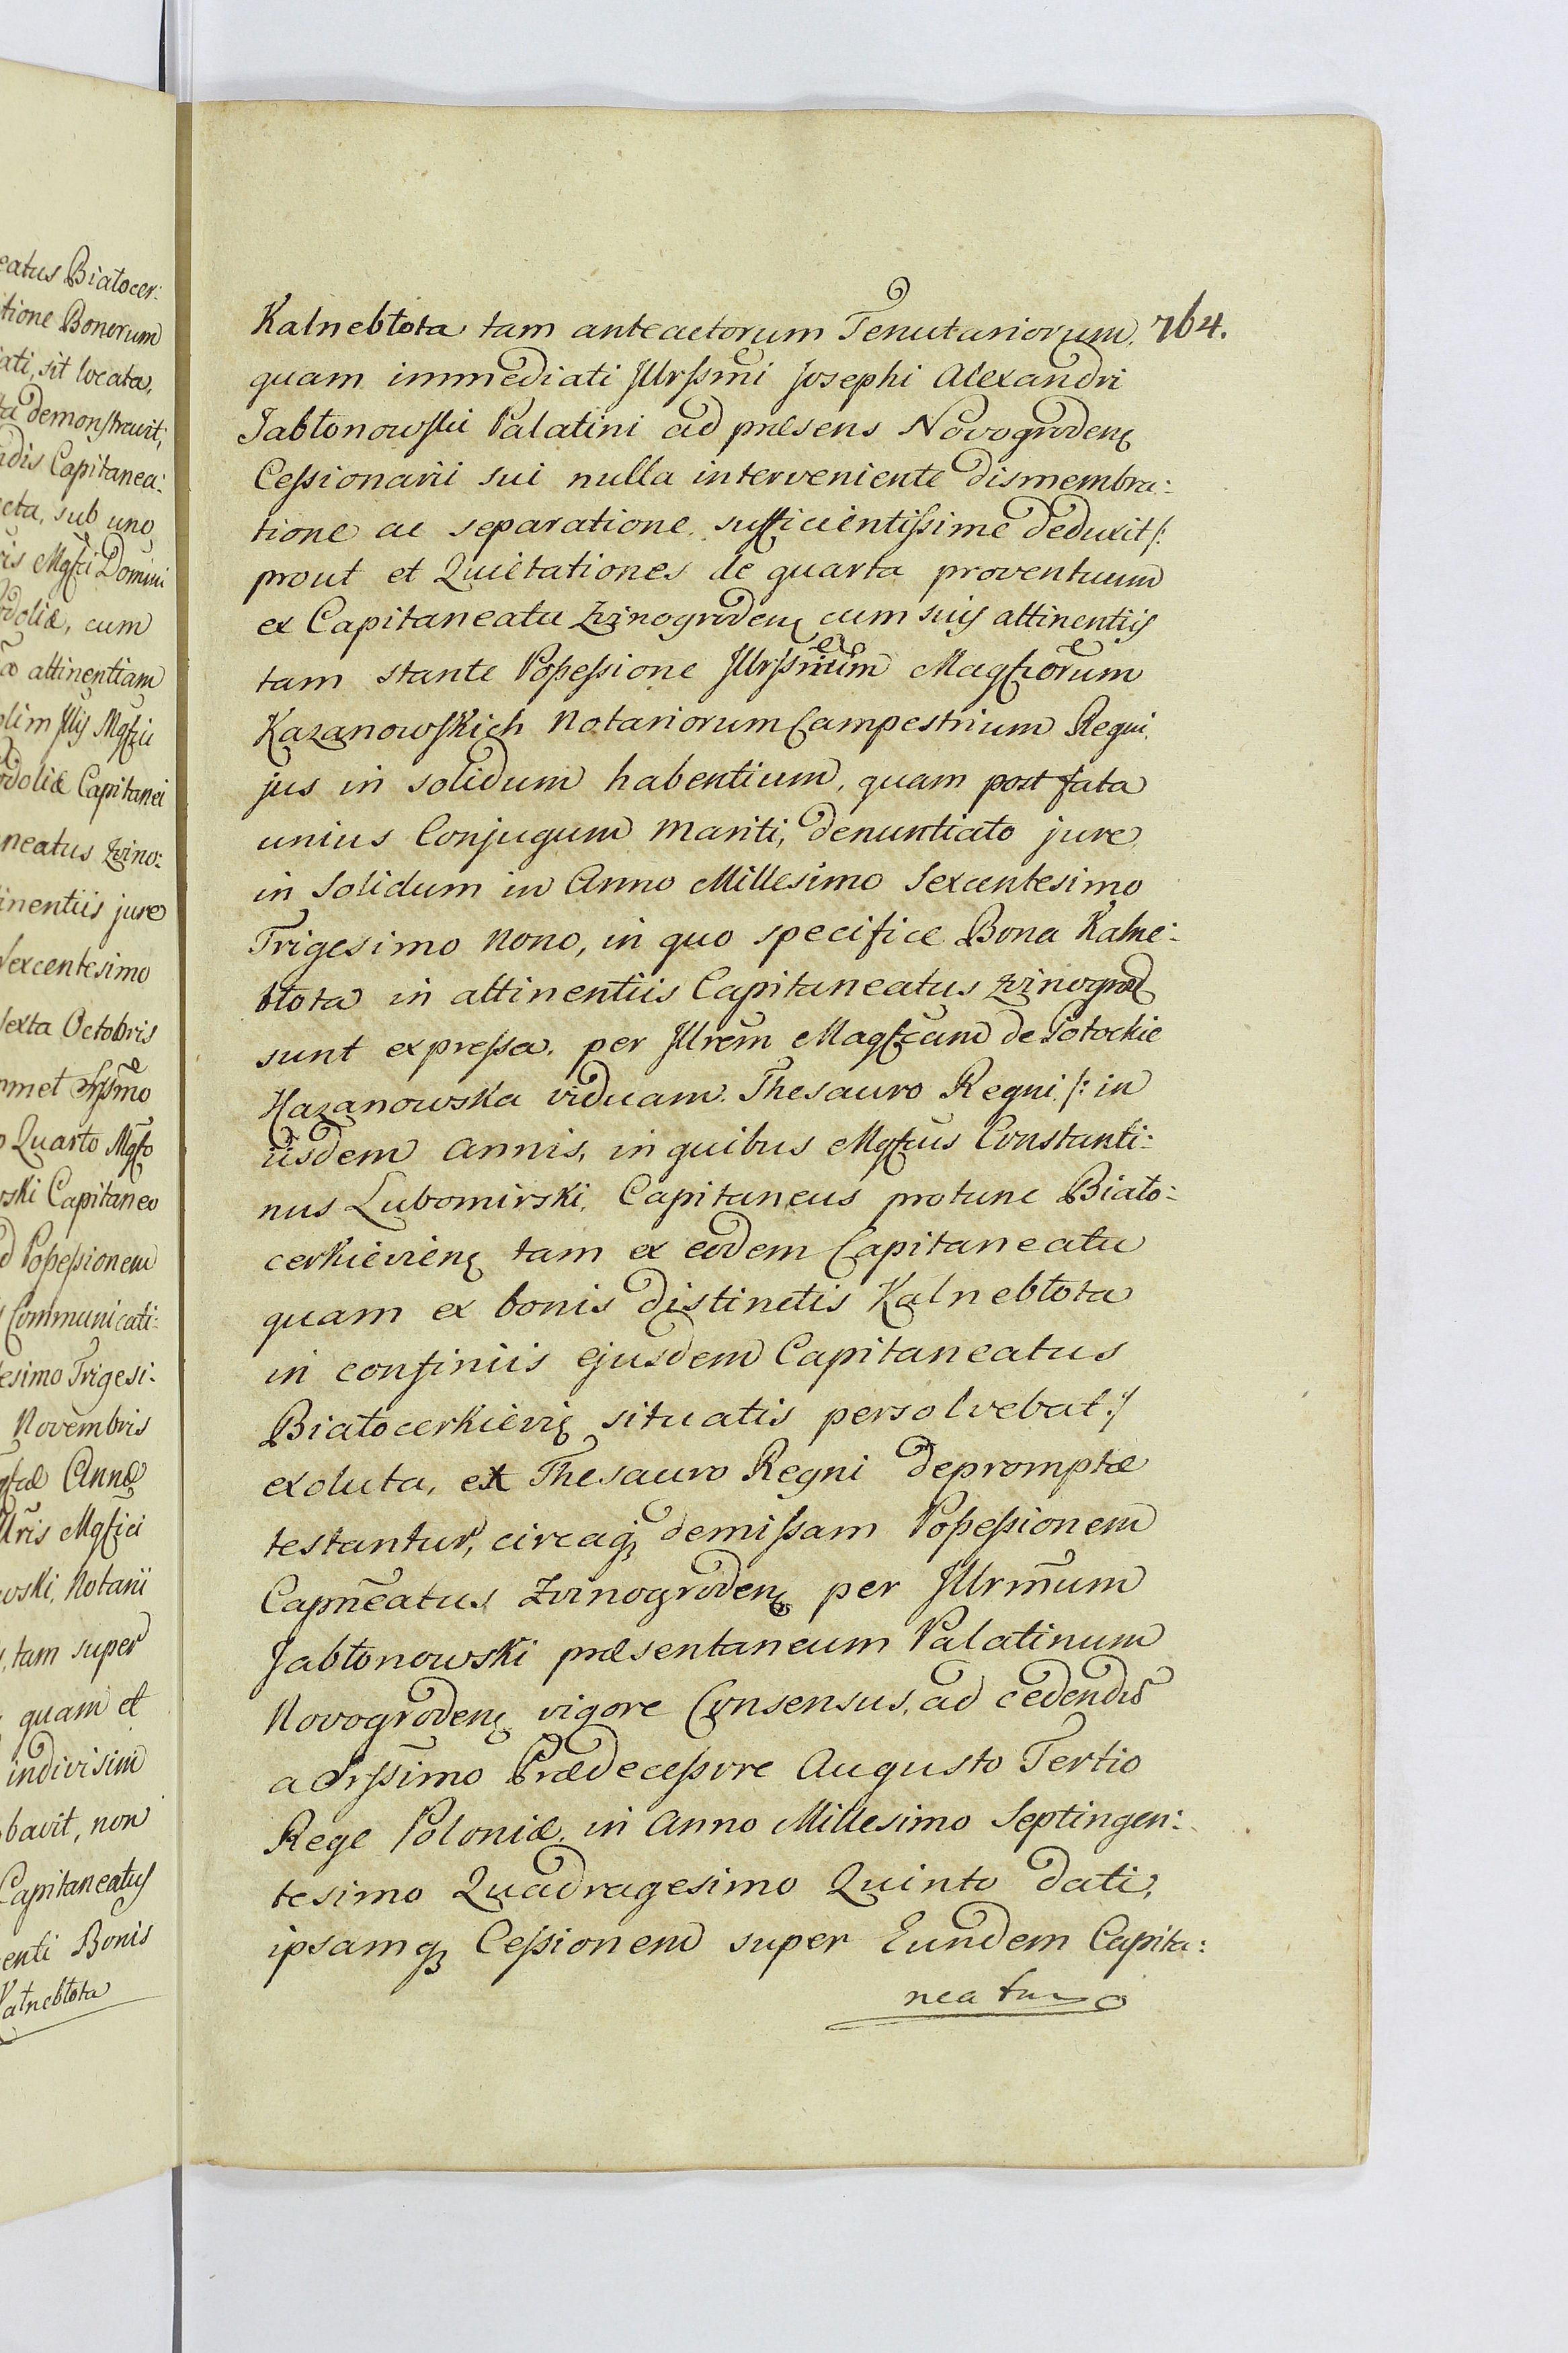 eatus Białocer:
itione Bonorum
ati, sit locata,
ta demonstravit,
adis Capitanea:
cta, sub uno
ris Mgfci Domini
odoliæ, cum
attinentiam
olim Illis Mgfcii
odoliæ Capitanei
neatus Zvino:
inentiis jure
sexcentesimo
sexta Octobris
o Quarto Mgfco
wski Capitaneo
d Possessionem
Communicati:
esimo Trigesi:
Novembris
gfcæ Annæ
Illris Mgfici
wski, Notarii
, tam super
quam et
indivisim
bavit, non
Capitaneatus
enti Bonis
Kalnebłota
Kalnebłota tam anteactorum Tenutariorum, 764.
quam immediati Illrssmi Josephi Alexandri
Jabłonowski Palatini ad præsens Novogroden̄
Cessionarii sui nulla interveniente dismembra:
tione ac separatione sufficientissime deduxit /:
prout et Quietationes de quarta proventuum
ex Capitaneatu Zvinogroden̄ cum suis attinentiis
tam stante Possessione Illrssmum Magfcorum
Kazanowskich Notariorum Campestrium Regni
jus in solidum habentium, quam post fata
unius Conjugum mariti, denuntiato jure
in Solidum in Anno Millesimo Sexcentesimo
Trigesimo Nono, in quo specifice Bona Kalne:
błota in attinentiis Capitaneatus Zvinogrod̄
sunt expressa, per Illrem Magfcam de Potockie
Kazanowska viduam Thesauro Regni /: in
iisdem Annis, in quibus Mgfcus Constanti:
nus Lubomirski, Capitaneus protunc Biało:
cerkievien̄ tam ex eodem Capitaneatu
quam ex bonis distinctis Kalnebłota
in confiniis ejusdem Capitaneatus
Białocerkievien̄ situatis persolvebat :/
exoluta, ex Thesauro Regni depromptæ
testantur, circaq; demissam Possessionem
Capn̄eatus Zvinogroden̄ per Illrm̄um
Jabłonowski præsentaneum Palatinum
Novogroden̄ vigore Consensus, ad cedendū
a Srssimo Prædecessore Augusto Tertio
Rege Poloniæ, in Anno Millesimo Septingen:
tesimo Quadragesimo Quinto dati,
ipsamq; Cessionem super Eundem Capita:
neatum